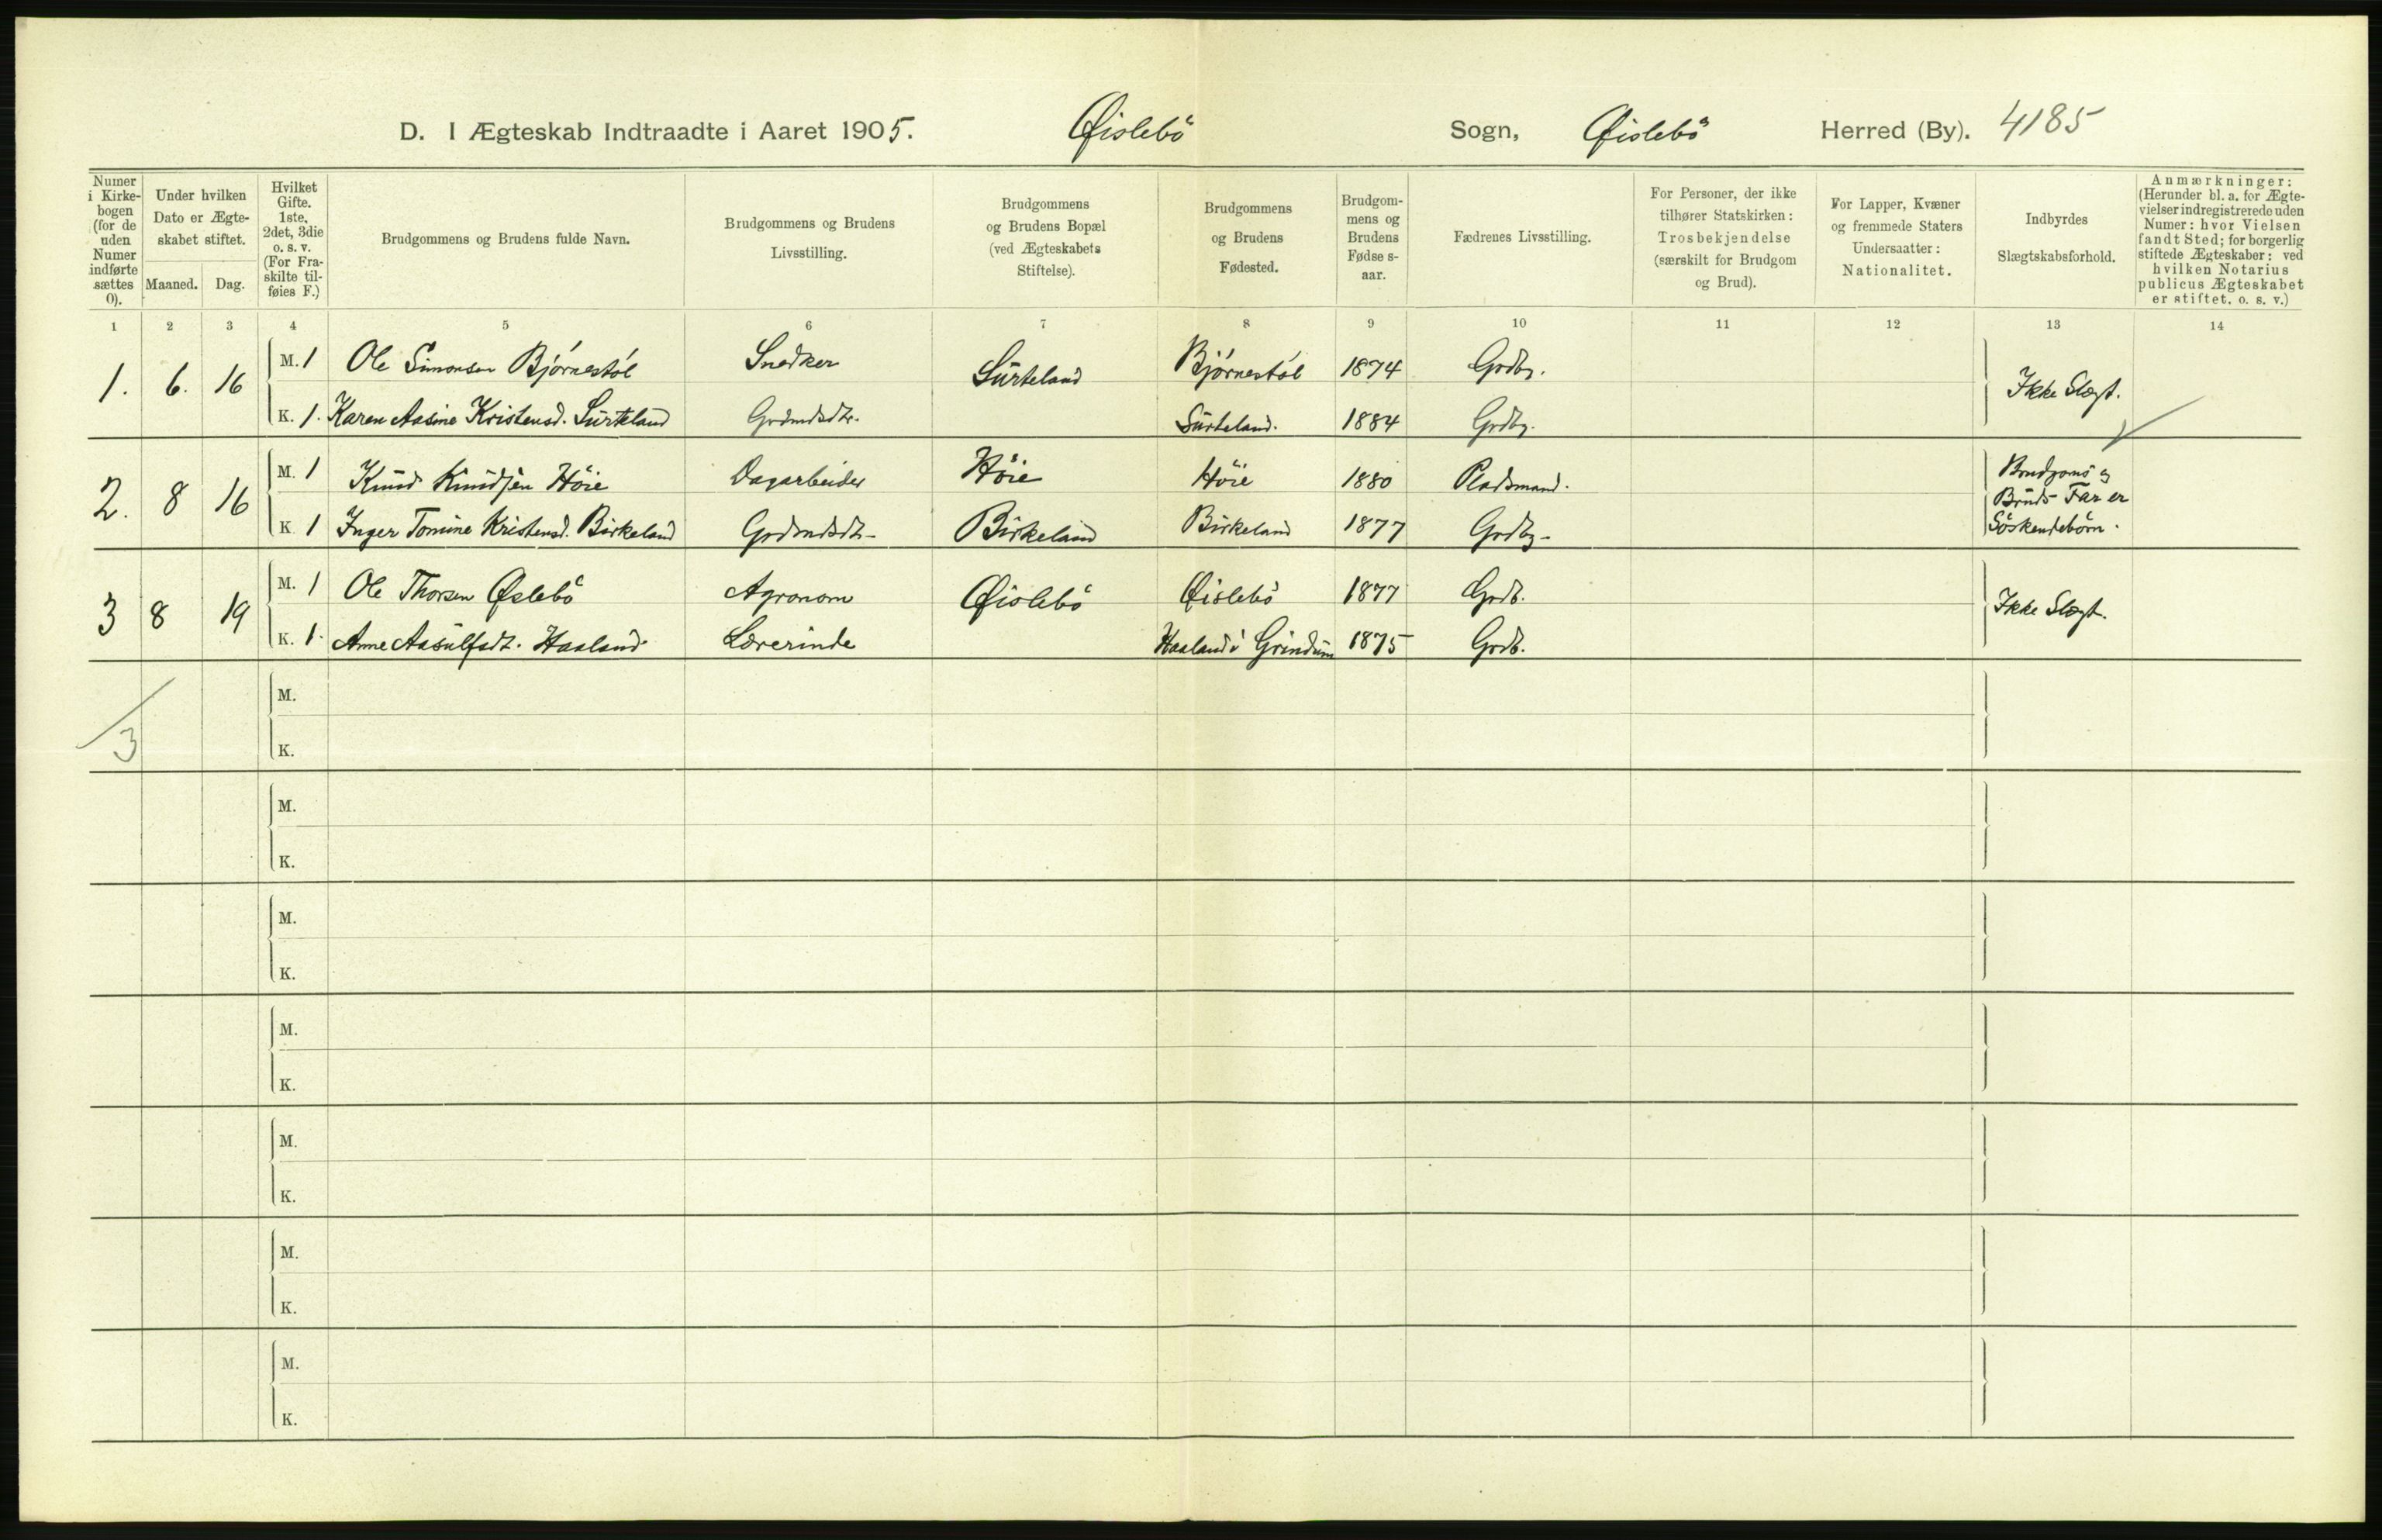 D. I Ægteskab Indtraadte i Aaret 1905. Øislebö Sogn, Øislebö Herred (By). 4185
Numer i Kirke- bogen (for de uden Numer indførte sættes 0).
Under hvilken Dato er Ægte- skabet stiftet.
Maaned. Dag.
Hvilket Gifte. 1ste, 2det, 3die o. s. v. (For Fra- skilte til- føies F.)
Brudgommens og Brudens fulde Navn.
Brudgommens og Brudens Livsstilling.
Brudgommens og Brudens Bopæl (ved Ægteskabets Stiftelse).
Brudgommens og Brudens Fødested.
Brudgom- mens og Brudens Fødse s- aar.
Fædrenes Livsstilling.
For Personer, der ikke tilhører Statskirken: Trosbekjendelse (særskilt for Brudgom og Brud).
For Lapper, Kvæner og fremmede Staters Undersaatter: Nationalitet.
Indbyrdes Slægtskabsforhold.
Anmærkninger: (Herunder bl. a. for Ægte- vielser indregistrerede uden Numer: hvor Vielsen fandt Sted; for borgerlig stiftede Ægteskaber: ved hvilken Notarius publicus Ægteskabet er stiftet, o. s. v.)
1 2 3 4 5 6 7 8 9 10 11 12 13 14
1. 6. 16 M. 1 Ole Simonsen Bjørnestøl Snedker Sürteland Bjørnestøl 1874 Grdbr. Ikke Slægt.
K. 1. Karen Aasine Kristensd. Sürteland Grdmdsdtr. Sürteland. 1884 Grdbr.
2. 8 16 M. 1 Knud Knudsen Höie Dagarbeider Höie Höie 1880 Pladsmand. Brudgoms og
Bruds Far er
K. 1 Inger Tomine Kristensd. Birkeland Grdmdsdtr. Birkeland Birkeland 1877 Grdbr. Söskendebörn.
3 8 19 M. 1 Ole Thorsen Øslebö Agronom Øislebö Øislebö 1877 Grdb. Ikke Slægt.
K. 1. Anne Aasulfsdt. Haaland Lærerinde Haaland i Grindum 1875 Grdb.
M.
3
K.
M.
K.
M.
K.
M.
K.
M.
K.
M.
K.
M.
K.